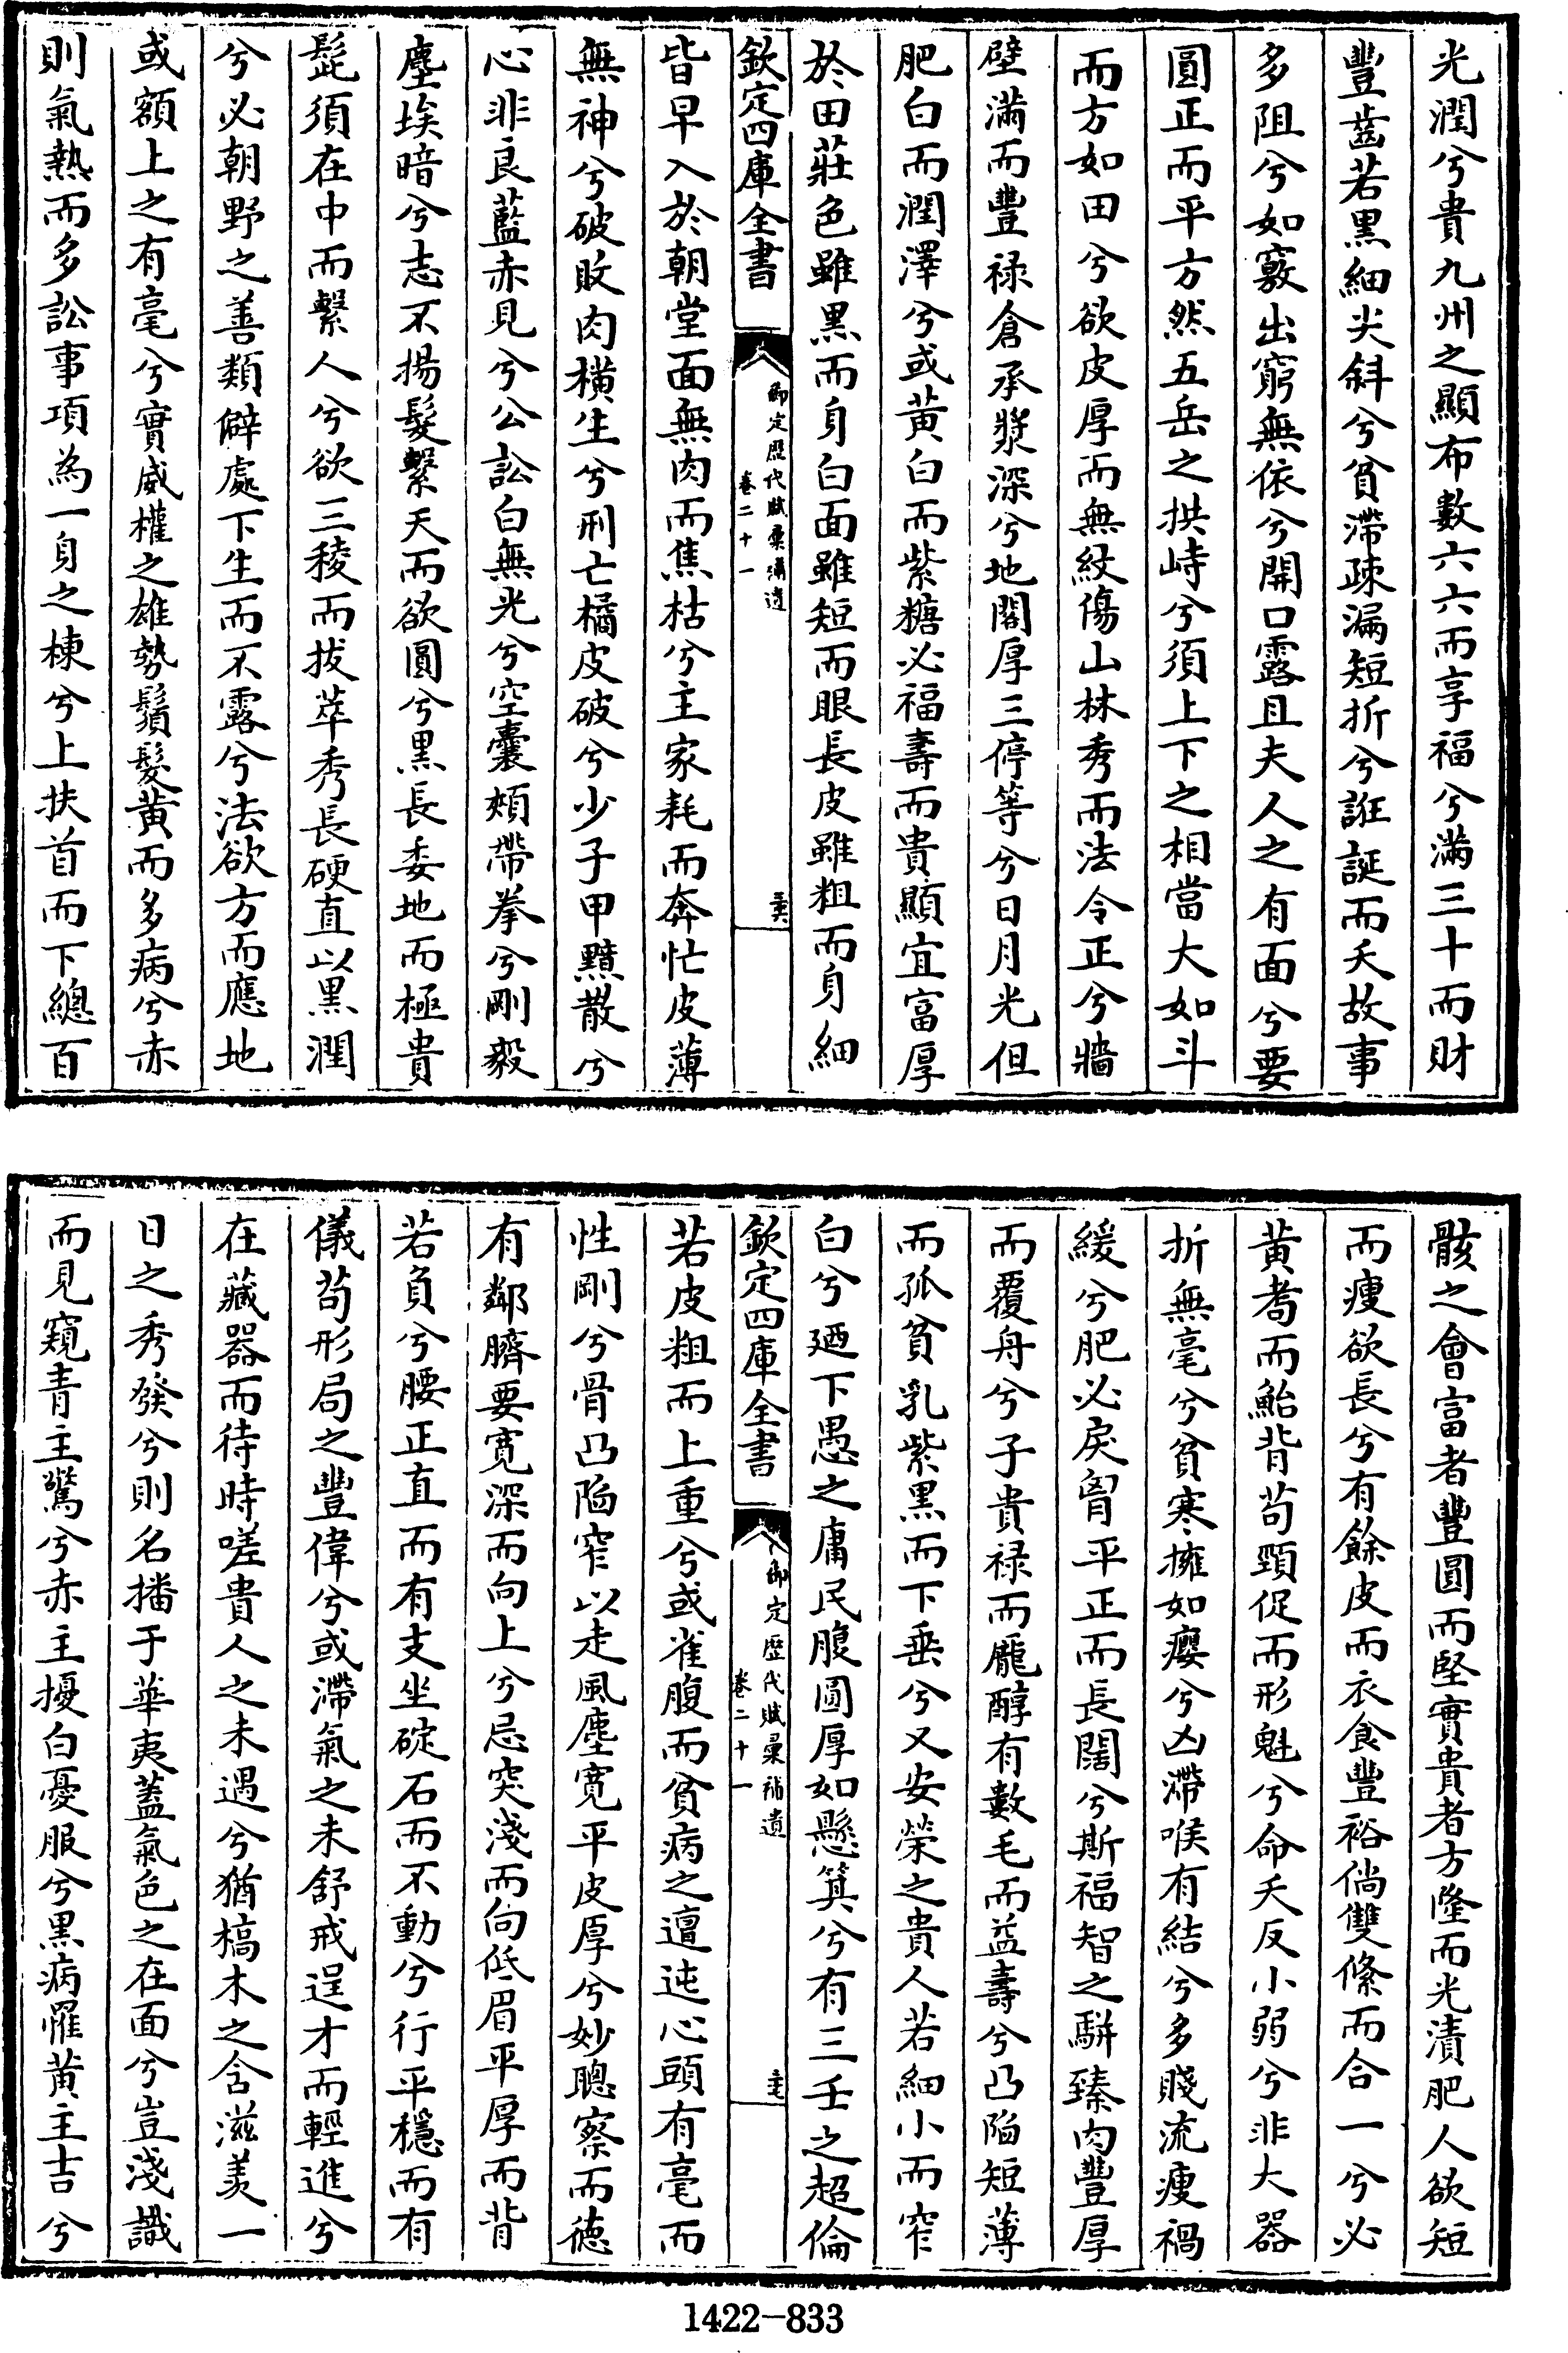 光潤兮貴九州之顯布數六六而享福兮滿三十而財
豐齒若黑細尖斜兮貧滯疎漏短折兮誑誕而夭故事
多阻兮如竅出窮無依兮開口露且夫人之有面兮要
圓正而平方然五岳之拱峙兮須上下之相當大如斗
而方如田兮欲皮厚而無紋傷山林秀而法令正兮牆
壁滿而豐祿倉承漿深兮地閣厚三停等兮日月光但
肥白而潤澤兮或黃白而紫糖必福壽而貴顯宜富厚
於田莊色雖黑而身白面雖短而眼長皮雖粗而身細
欽定四庫全書
御定歷代賦彙補遺
卷二十一
皆早入於朝堂面無肉而焦枯兮主家耗而奔忙皮薄
無神兮破敗肉橫生兮刑亡橘皮破兮少子甲黶散兮
心非良藍赤見兮公訟白無光兮空囊頰帶拳兮剛毅
塵埃暗兮志不揚髮繫天而欲圓兮黑長委地而極貴
髭須在中而繫人兮欲三稜而拔萃秀長硬直以黑潤
兮必朝野之善類僻處下生而不露兮法欲方而應地
或額上之有毫兮實威權之雄勢鬚髮黃而多病兮赤
則氣熱而多訟事項為一身之棟兮上扶首而下總百
骸之會富者豐圓而堅實貴者方隆而光漬肥人欲短
而瘦欲長兮有餘皮而衣食豐裕倘雙絛而合一兮必
黃耉而鮐背苟頸促而形魁兮命夭反小弱兮非大器
折無毫兮貧寒擁如癭兮凶滯喉有結兮多賤流瘦禍
緩兮肥必戾胷平正而長闊兮斯福智之駢臻肉豐厚
而覆舟兮子貴祿而龐醇有數毛而益壽兮凸陷短薄
而孤貧乳紫黑而下垂兮又安榮之貴人若細小而窄
白兮廼下愚之庸民腹圓厚如懸箕兮有三壬之超倫
欽定四庫全書
御定歷代賦彙補遺
卷二十一
若皮粗而上重兮或雀腹而貧病之邅迍心頭有毫而
性剛兮骨凸陷窄以走風塵寬平皮厚兮妙聰察而德
有鄰臍要寬深而向上兮忌突淺而向低眉平厚而背
若負兮腰正直而有支坐碇石而不動兮行平穩而有
儀苟形局之豐偉兮或滯氣之未舒戒逞才而輕進兮
在藏器而待時嗟貴人之未遇兮猶槁木之含滋羙一
日之秀發兮則名播于華夷蓋氣色之在面兮豈淺識
而見窺青主驚兮赤主擾白憂服兮黑病罹黃主吉兮
1422-833